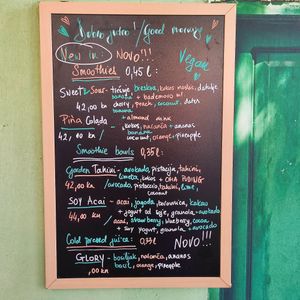 Dobro jutro! / Good morning
New in!
NOVO!!!
Vegan
Smoothies 0,45l:
Sweet Sour - trešnje breskva, kokos maslac, datulje
banana + bademovo ml
42,00 kn cherry, peach, coconut, dates
banana + almond milk
Piña Colada - kokos, naranča + ananas
banana
42,00 kn / coconut, orange, pineapple
Smoothie bowls 0,35l:
Garden Tahini - avokado, pistacija, tahini,
limeta, kokos + CHIA PUDING
42,00 kn / avocado, pistaccio, tahini, lime,
coconut
SOY Acai - acai, jagoda, borovnica, kakao
+ yogurt od soje, granola + avokado
44,00 kn / acai, strawberry, blueberry, cocoa
+ soy yogurt, granola + avocado
Cold pressed juice: 0,33l
NOVO!!!
GLORY - bosiljak, naranča, ananas
,00 kn basil, orange, pineapple